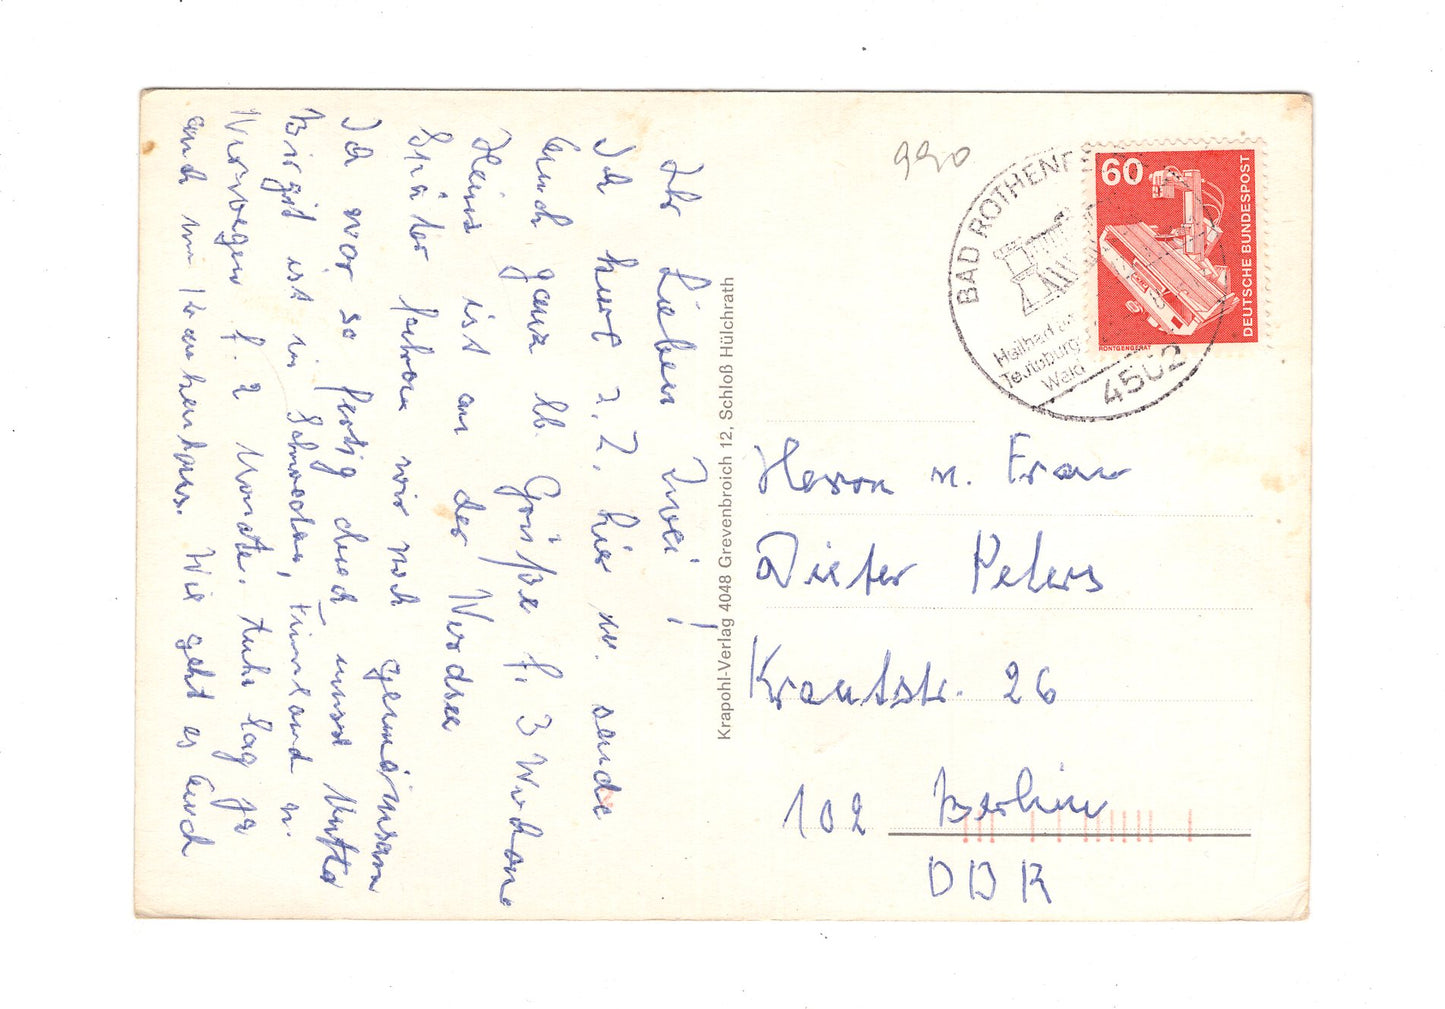 Ihr Lieben Zwei!
Ich kure z. Z. hier u. sende
Euch ganz lb. Grüße f. 3 Wochen
Heins ist an der Nordsee
Später fahren wir noch gemeinsam
Ich war so fertig durch unsre Mutter
Birgit ist in Schweden, Finnland u.
Norwegen f. 2 Monate. Ruhi lag ja
auch im Krankenhaus. Wie geht es Euch
Krapohl-Verlag 4048 Grevenbroich 12, Schloß Hülchrath
990
BAD ROTHENF
Heilbad am
Teutoburger
Wald
4502
60
DEUTSCHE BUNDESPOST
RÖNTGENGERÄT
Herrn u. Frau
Dieter Peters
Krautstr. 26
102 Berlin
DDR